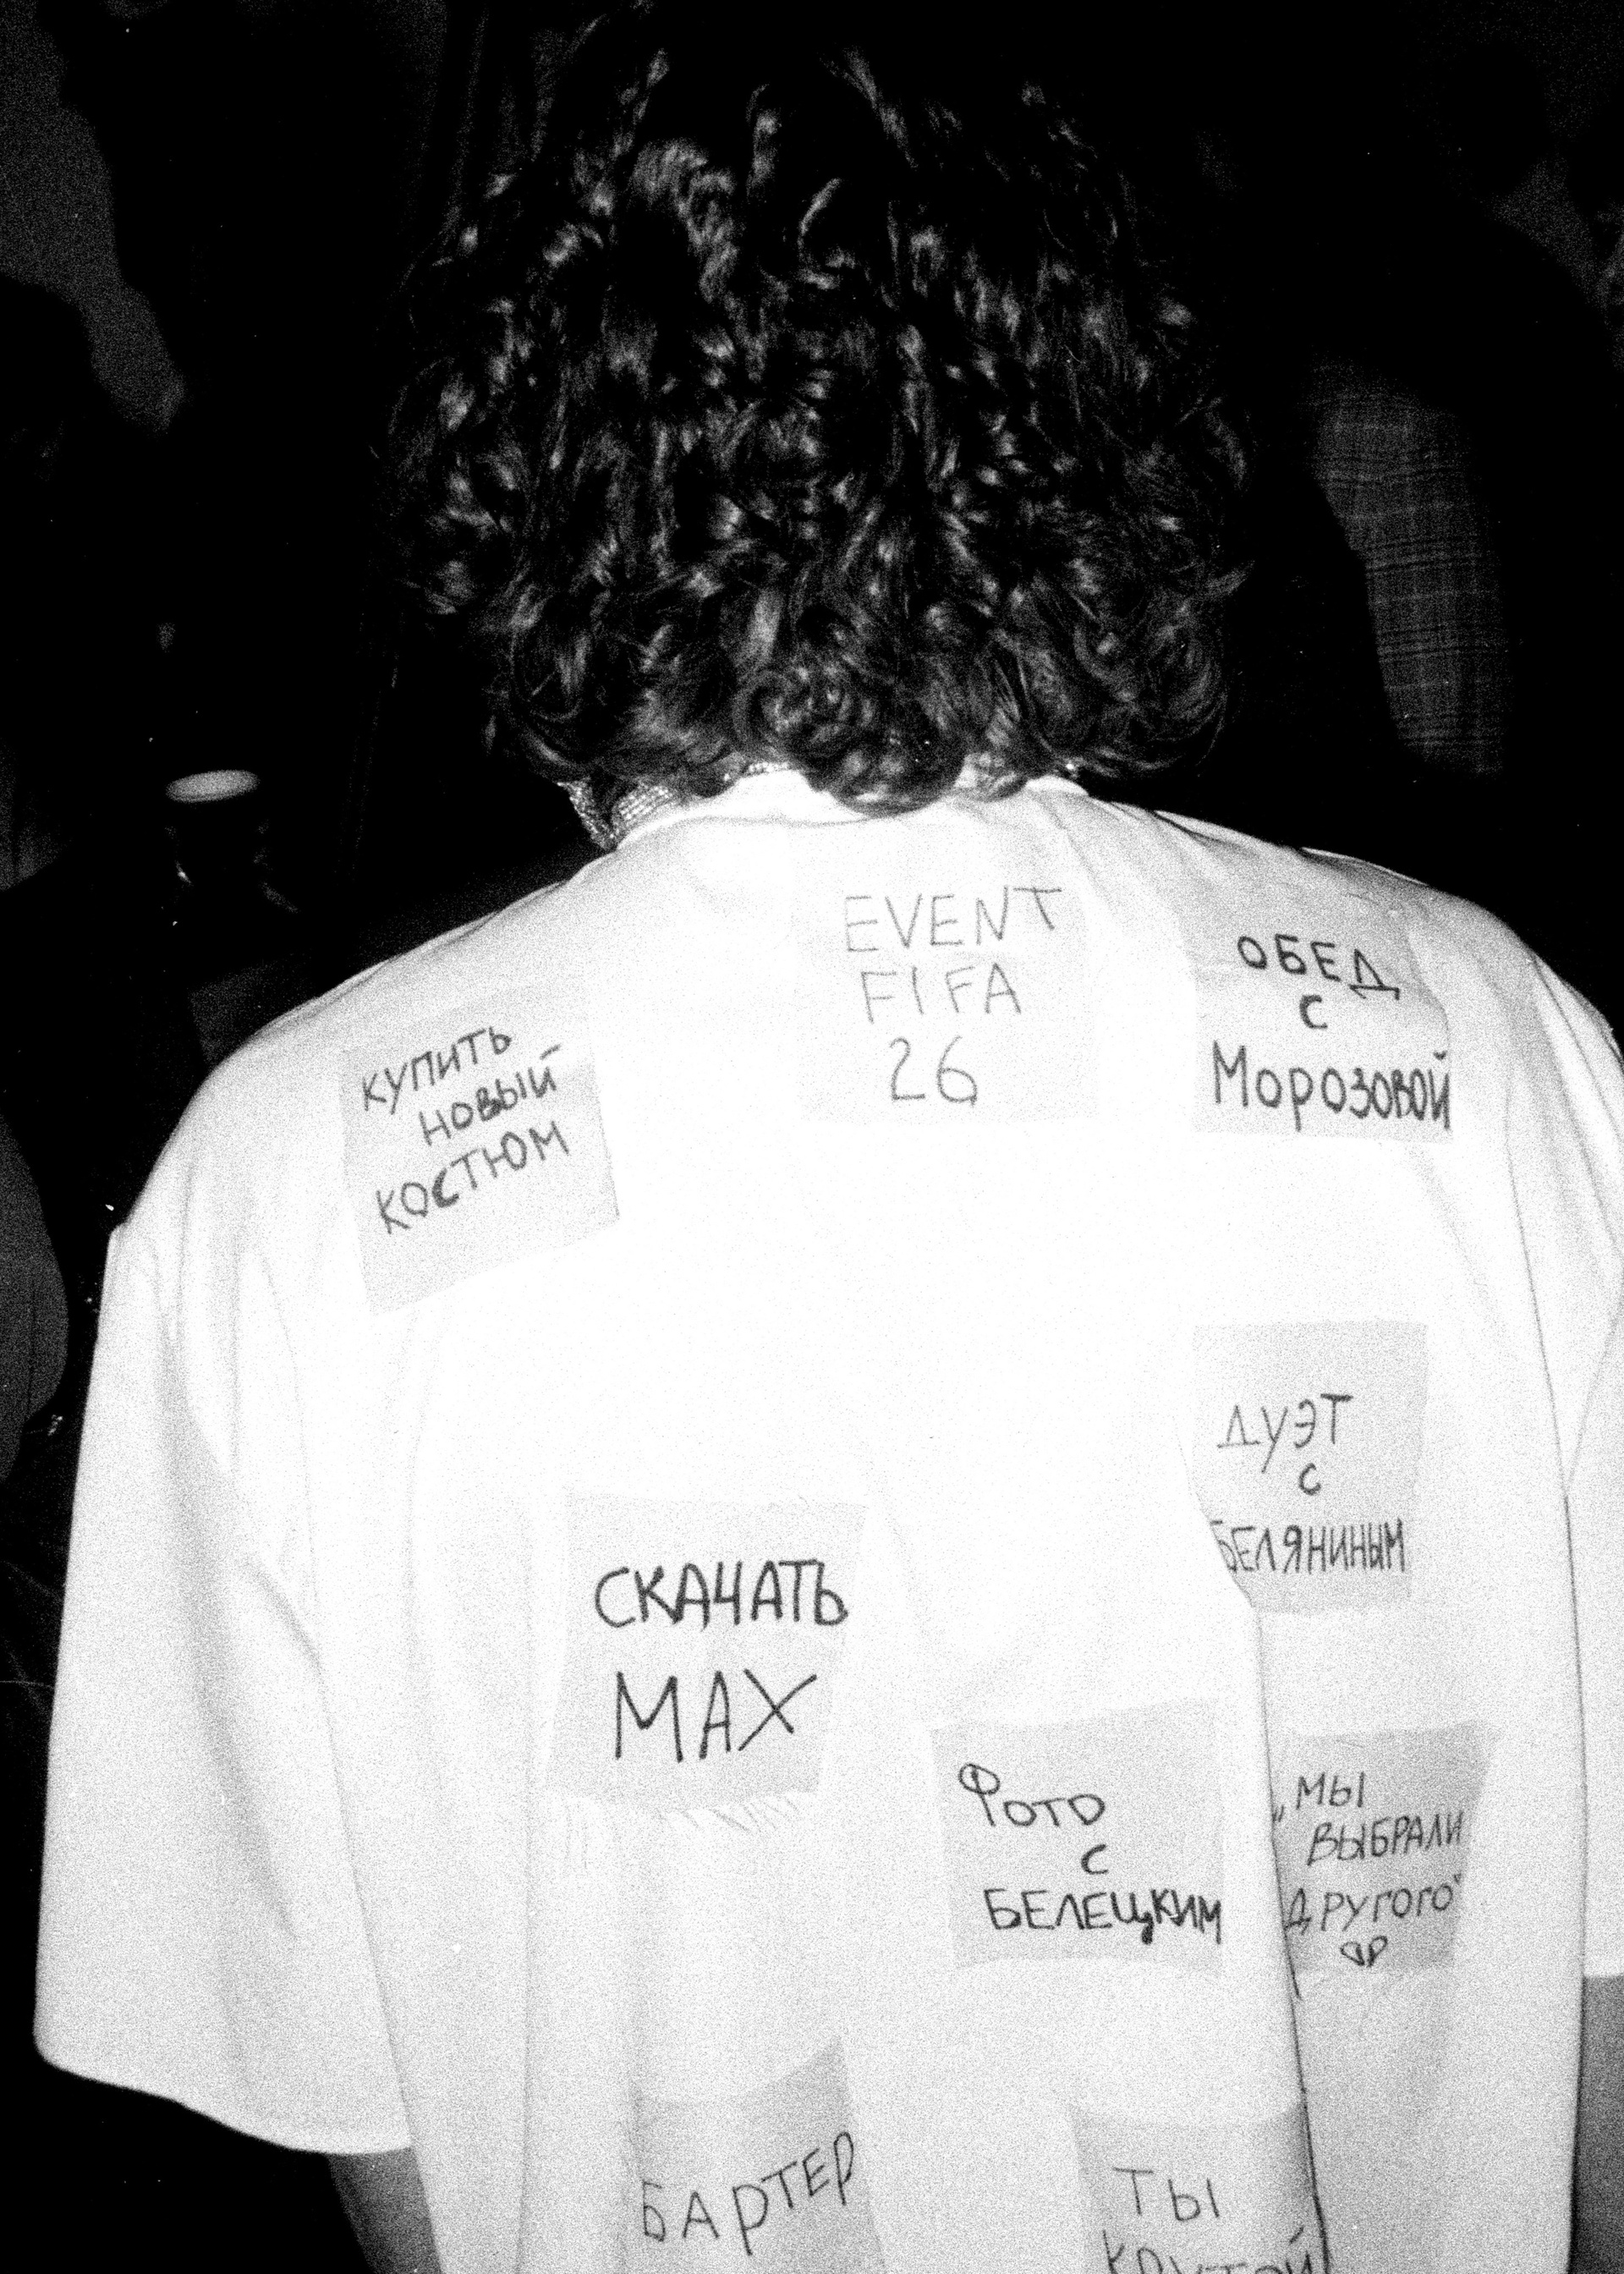 EVENT
FIFA
26
ОБЕД
с
МОРОЗОВОЙ
КУПИТЬ
НОВЫЙ
КОСТЮМ
ДУЭТ
с
БЕЛЯНИНЫМ
СКАЧАТЬ
MAX
ФОТО
с
БЕЛЕЦКИМ
„МЫ
ВЫБРАЛИ
ДРУГОГО"
БАРТЕР
ТЫ
КРУТОЙ